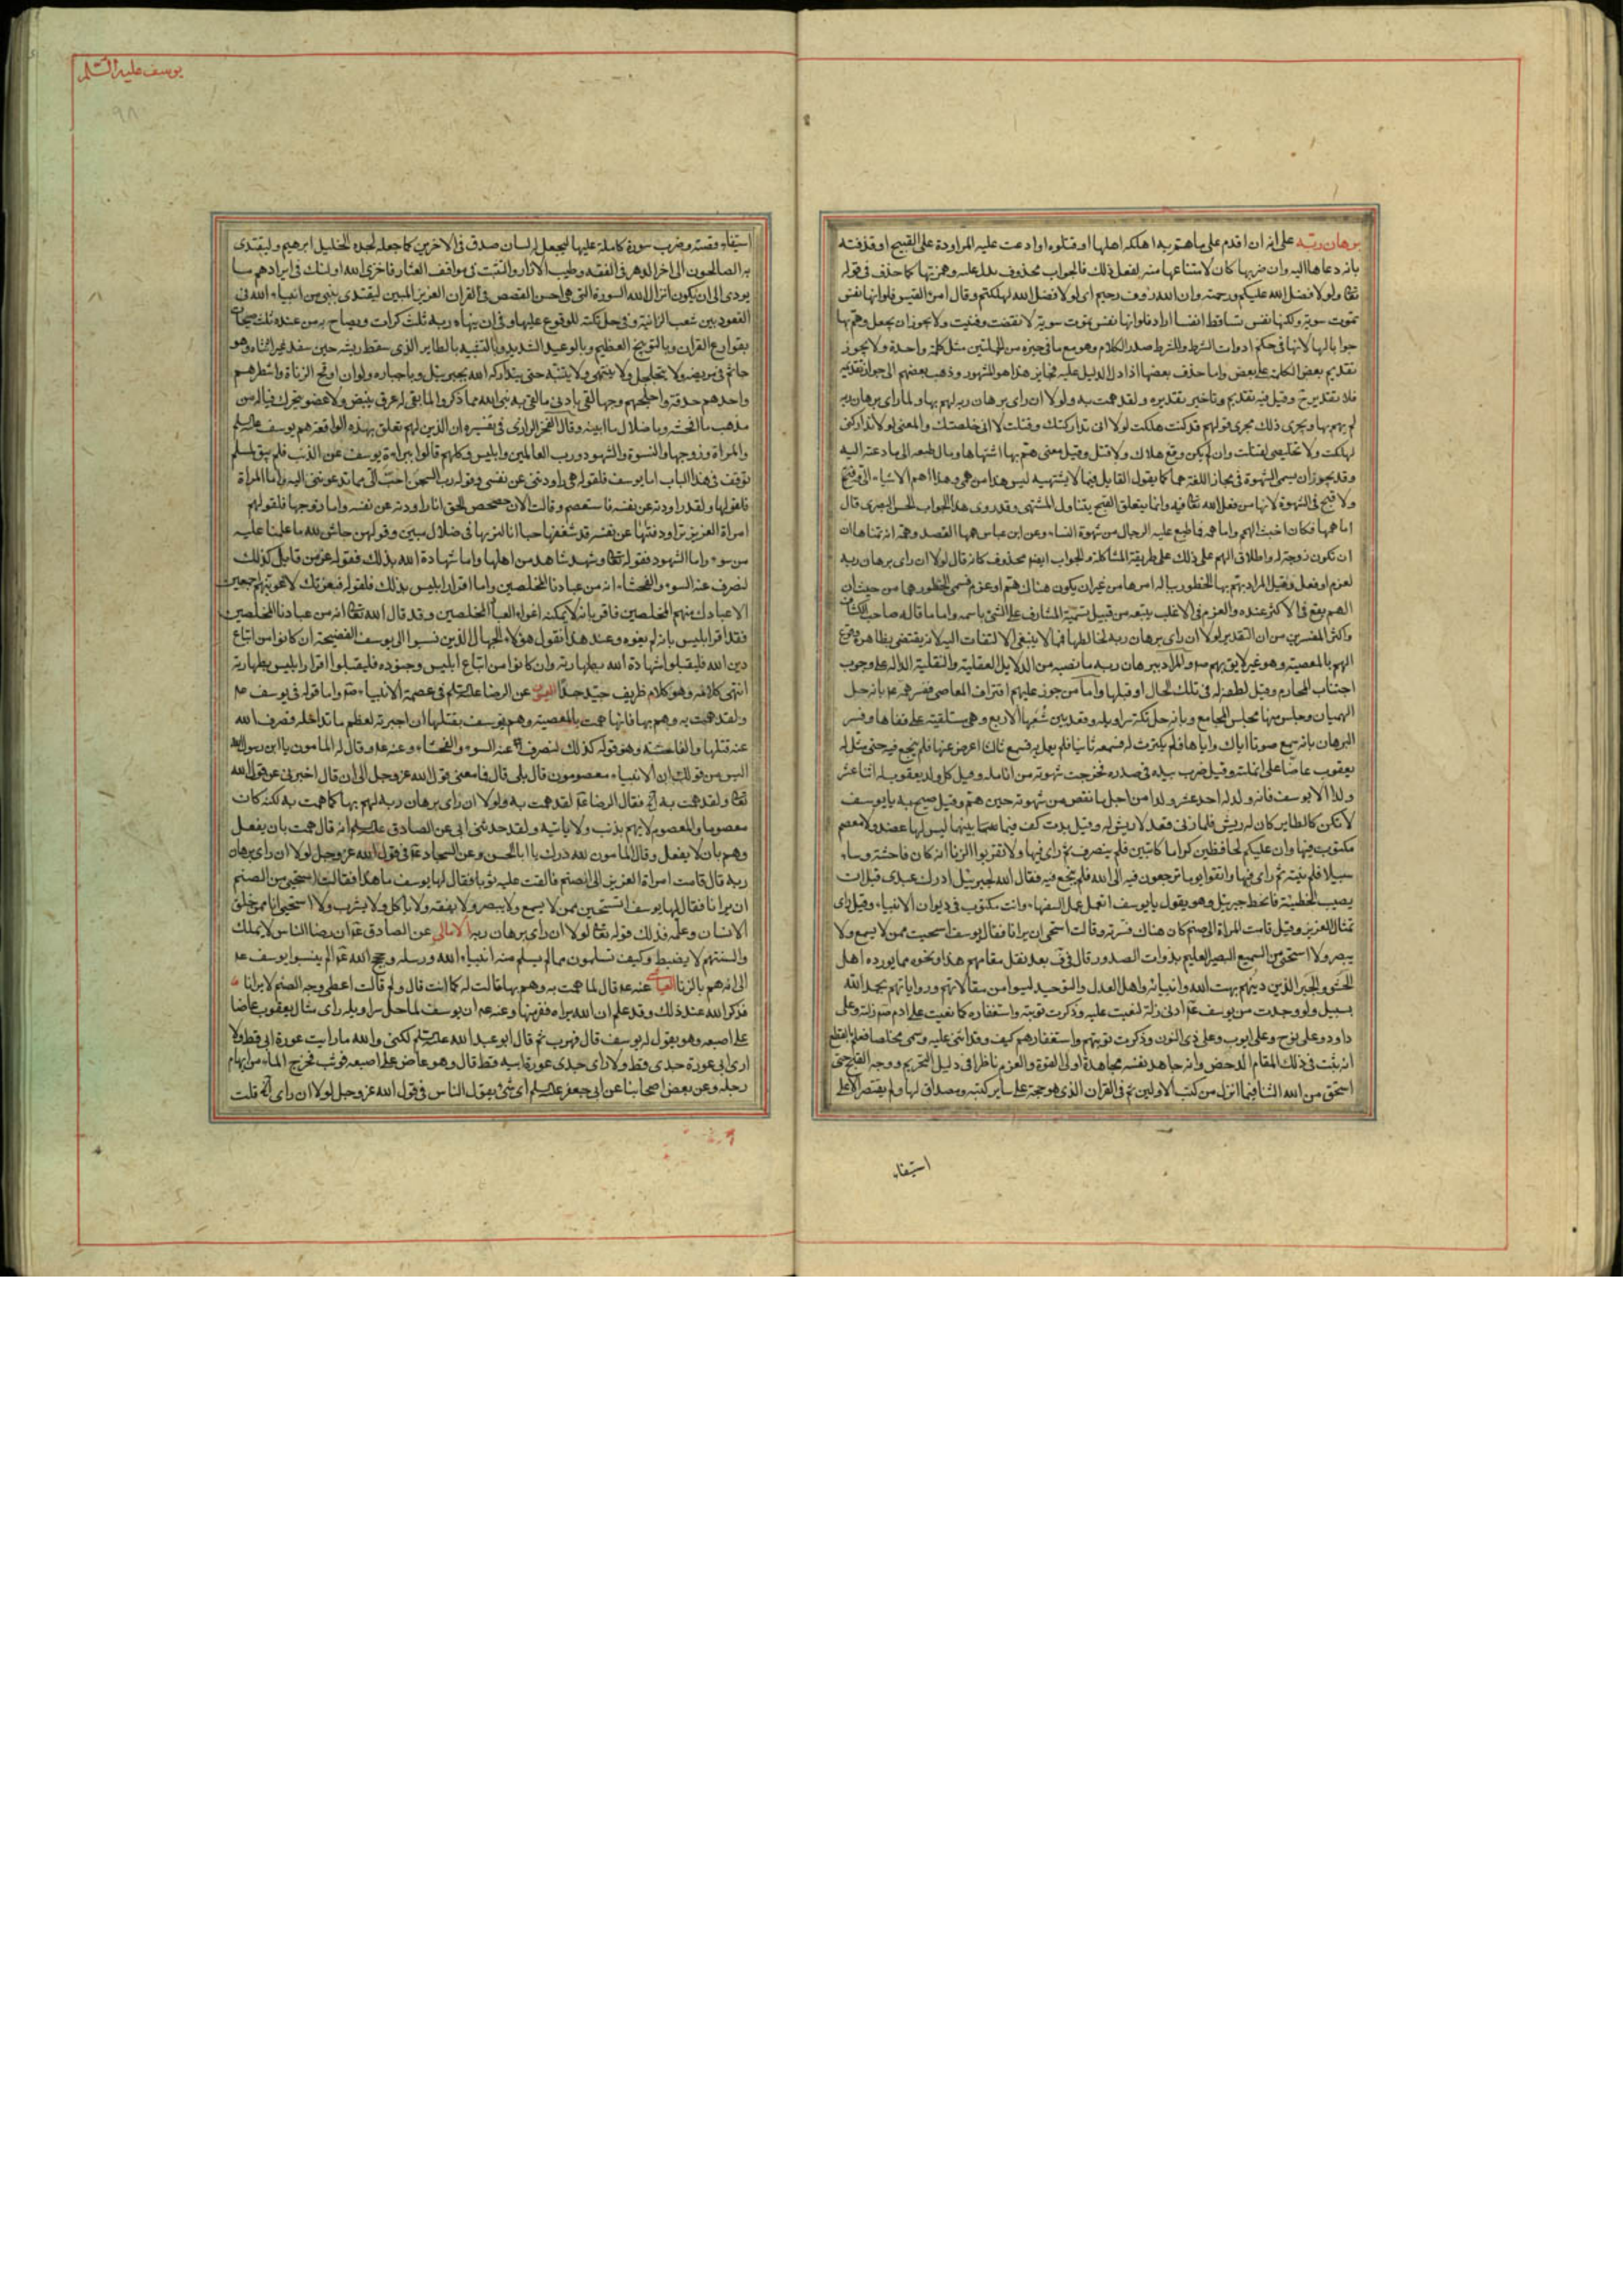 برهان ربه على انه ان اقدم على ما همّ به اهلكه اهلها او قتلوه او ادعت عليه المراودة على القبيح او قذفته
بانه دعاها اليه وان ضربها كان لامتناعها منه لفعل ذلك فالجواب محذوف يدل عليه وهمّ بها كما حذف في قوله
تعالى ولولا فضل الله عليكم ورحمته وان الله رؤف رحيم اى لولا فضل الله لهلكتم وقال امرؤ القيس فلو انها نفس
تموت سوية ولكنها نفس تساقط انفسا اراد فلو انها نفس تموت سوية لانقضت وفنيت ولا يجوز ان يجعل وهمّ بها
جوابا لها لانها في حكم ادوات الشرط وللشرط صدر الكلام وهو مع ما في حيزه من الجملتين مثل كلمة واحدة ولا يجوز
تقديم بعض الكلمة على بعض واما حذف بعضها اذا دل الدليل عليه فجايز هذا هو المشهور وذهب بعضهم الى جواز تقديمه
فلا تقدير ح وقيل فيه تقديم وتاخير بتقديره ولقد همت به ولولا ان راى برهان ربه لهم بها ولما راى برهان ربه
لم يهم بها ويجرى ذلك مجرى قولهم قد كنت هلكت لولا انى تداركتك وقتلت لولا انى خلصتك والمعنى لولا تداركى
لهلكت ولولا تخليصى لقتلت وان لم يكن وقع هلاك ولا قتل وقيل معنى همّ بها اشتهاها ومال طبعه الى ما دعته اليه
وقد يجوز ان يسمى الشهوة في مجاز اللغة هما كما يقول القايل فيما لا يشتهيه ليس هذا من همى وهذا اهم الاشياء الىّ
ولا قبح في الشهوة لانها من فعل الله تعالى فيه وانما يتعلق القبح بتناول المشتهى وقد روى هذا الجواب الحسن البصرى قال
اما همها فكان اخبث الهم واما همه فما طبع عليه الرجال من شهوة النساء وعن ابن عباس همها القصد وهمه انه تمناها ان
ان تكون زوجة له واطلاق الهم على ذلك على طريقة المشاكلة والجواب ايضا محذوف كانه قال لولا ان راى برهان ربه
لعزم او فعل وقيل المراد بهمّ بها الخطور بباله امرها من غير ان يكون هناك همّ او عزم فسمى الخطور هما من حيث ان
الهم يقع في الاكثر عنده والعزم في الاغلب يتبعه من قبيل تسمية المشارف على الشئ باسمه واما ما قاله صاحب الكشاف
واكثر المفسرين من ان التقدير لولا ان راى برهان ربه لخالطها فما لا ينبغى الالتفات اليه لانه يقتضى بظاهره وقوع
الهم بالمعصية وهو غير لايق بهم والمراد ببرهان ربه ما نصبه من الدلايل العقلية والنقلية الدالة على وجوب
اجتناب المحارم وقيل لطفه له في تلك الحال او قبلها واما من جوز عليهم اقتراف المعاصى ففسر همه بانه حل
الهميان وجلس منها مجلس المجامع وبانه حل تكة سراويله وقعد بين شعبها الاربع وهى مستلقية على قفاها وفسر
البرهان بانه سمع صوتا اياك واياها فلم يكترث له فسمعه ثانيا فلم يعمل به فسمع ثالثا اعرض عنها فلم ينجع فيه حتى مثل له
يعقوب عاضا على انملته وقيل ضرب بيده في صدره فخرجت شهوته من انامله وقيل كل ولد يعقوب له اثنا عشر
ولدا الا يوسف فانه ولد له احد عشر ولدا من اجل ما نقص من شهوته حين همّ وقيل صيح به يا يوسف
لا تكن كالطاير كان له ريش فلما زنى قعد لا ريش له وقيل بدت كف فيما بينهما ليس لها عضد ولا معصم
مكتوب فيها وان عليكم لحافظين كراما كاتبين فلم ينصرف ثم راى فيها ولا تقربوا الزنا انه كان فاحشة وساء
سبيلا فلم ينته ثم راى فيها واتقوا يوما ترجعون فيه الى الله فلم ينجع فيه فقال الله لجبرئيل ادرك عبدى قبل ان
يصيب الخطيئة فانحط جبرئيل وهو يقول يا يوسف اتعمل عمل السفهاء وانت مكتوب في ديوان الانبياء وقيل راى
تمثال العزيز وقيل قامت المراة الى صنم كان هناك فسترته وقالت استحى ان يرانا فقال يوسف استحييت ممن لا يسمع ولا
يبصر ولا استحى من السميع البصير العليم بذوات الصدور قال في ف بعد نقل مقامهم هذا ونحوه مما يورده اهل
الحشو والجبر الذين دينهم بهت الله وانبيائه واهل العدل والتوحيد ليسوا من مقالاتهم ورواياتهم بحمد الله
بسبيل ولو وجدت من يوسف ع ادنى زلة لنعيت عليه وذكرت توبته واستغفاره كما نعيت على ادم زلته وعلى
داود وعلى نوح وعلى ايوب وعلى ذى النون وذكرت توبتهم واستغفارهم كيف وقد اثنى عليه وسمى مخلصا فعلم بالقطع
انه ثبت في ذلك المقام الدحض وانه جاهد نفسه مجاهدة اولى القوة والعزم ناظرا في دليل التحريم ووجه القبح حتى
استحق من الله الثنا فيما انزل من كتب الاولين ثم في القران الذى هو حجة على ساير كتبه ومصداق لها ولم يقتصر الا على
استيفاء
يوسف عليه السلام
٩٨
استيفاء قصته وضرب سورة كاملة عليها ليجعل له لسان صدق في الاخرين كما جعله لجده الخليل ابرهيم وليقتدى
به الصالحون الى اخر الدهر في العفة وطيب الازار والتثبت في مواقف العثار فاخزى الله اولئك في ايرادهم ما
يودى الى ان يكون انزال الله السورة التى هى احسن القصص في القران العزيز المبين ليقتدى بنبى من انبياء الله في
القعود بين شعب الزانية وفي حل تكته للوقوع عليها وفي ان ينهاه ربه ثلث كرات ويصاح به من عنده ثلث صيحات
بقوارع القران وبالتوبيخ العظيم وبالوعيد الشديد وبالتشبيه بالطاير الذى سقط ريشه حين سفد غير انثاه وهو
جاثم في مربضه لا يتحلحل ولا ينتهى ولا يتنبه حتى يتداركه الله بجبرئيل وباجباره ولو ان اوقح الزناة واشطرهم
واحدهم حدقة واجلحهم وجها لقى بادنى ما لقى به نبى الله مما ذكروا لما بقى له عرق ينبض ولا عضو يتحرك فيا له من
مذهب ما افحشه ومن ضلال ما ابينه وقال الفخر الرازى في تفسيره ان الذين لهم تعلق بهذه الواقعة هم يوسف عليه السلم
والمراة وزوجها والنسوة والشهود ورب العالمين وابليس وكلهم قالوا ببراءة يوسف عن الذنب فلم يبق لمسلم
توقف في هذا الباب اما يوسف فلقوله هى راودتنى عن نفسى وقوله رب السجن احب الى مما تدعوننى اليه واما المراة
فلقولها ولقد راودته عن نفسه فاستعصم وقالت الان حصحص الحق انا راودته عن نفسه واما زوجها فلقوله
امراة العزيز تراود فتيها عن نفسه قد شغفها حبا انا لنريها في ضلال مبين وقولهن حاش لله ما علمنا عليه
من سوء واما الشهود فقوله تعالى وشهد شاهد من اهلها واما شهادة الله بذلك فقوله عز من قايل كذلك
لنصرف عنه السوء والفحشاء انه من عبادنا المخلصين واما اقرار ابليس بذلك فلقوله فبعزتك لاغوينهم اجمعين
الا عبادك منهم المخلصين فاقر بانه لا يمكنه اغواء العباد المخلصين وقد قال الله تعالى انه من عبادنا المخلصين
فقد اقر ابليس بانه لم يغوه وعند هذا نقول هؤلاء الجهال الذين نسبوا الى يوسف الفضيحة ان كانوا من اتباع
دين الله فليقبلوا شهادة الله بطهارته وان كانوا من اتباع ابليس وجنوده فليقبلوا اقرار ابليس بطهارته
انتهى كلامه وهو كلام ظريف جيد جدا العيون عن الرضا عليه السلم في عصمة الانبياء واما قوله في يوسف
ولقد همت به وهم بها فانها همت بالمعصية وهم يوسف بقتلها ان اجبرته لعظم ما تداخله فصرف الله
عنه قتلها والفاحشة وهو قوله كذلك لنصرف عنه السوء والفحشاء وعنه وقال له المامون يا ابن رسول الله
اليس من قولك ان الانبياء معصومون قال بلى قال فما معنى قول الله عز وجل الى ان قال اخبرنى عن قول الله
تعالى ولقد همت به فقال الرضا لقد همت به ولولا ان راى برهان ربه لهم بها كما همت به لكنه كان
معصوما والمعصوم لا يهم بذنب ولا ياتيه ولقد حدثنى ابى عن الصادق عليه السلم انه قال همت بان يفعل
وهم بان لا يفعل وقال المامون لله درك يا ابا الحسن وعن السجاد في قول الله عز وجل لولا ان راى برهان
ربه قال قامت امراة العزيز الى الصنم فالقت عليه ثوبا فقال لها يوسف ما هذا فقالت استحيى من الصنم
ان يرانا فقال لها يوسف اتستحين ممن لا يسمع ولا يبصر ولا يفقه ولا ياكل ولا يشرب ولا استحيى انا ممن خلق
الانسان وعلمه فذلك قوله تعالى لولا ان راى برهان ربه الامالى عن الصادق ان رضا الناس لا يملك
والسنتهم لا يضبط وكيف تسلمون مما لم يسلم منه انبياء الله ورسله وحجج الله الم ينسبوا يوسف
الى انه هم بالزنا العياشى عنه قال لما همت به وهم بها قالت له كما انت قال ولم قالت اغطى وجه الصنم لا يرانا
فذكر الله عند ذلك وقد علم ان الله يراه ففر منها وعنه ان يوسف لما حل سراويله راى مثال يعقوب عاضا
على اصبعه وهو يقول له يوسف قال فهرب ثم قال ابو عبد الله عليه السلم لكنى والله ما رايت عورة ابى قط ولا
ارى ابى عورة جدى قط ولا راى جدى عورة ابيه قط قال وهو عاض على اصبعه فوثب فخرج الماء من ابهام
رجله وعن بعض اصحابنا عن ابى جعفر عليه السلم اى شئ يقول الناس في قول الله عز وجل لولا ان راى قلت